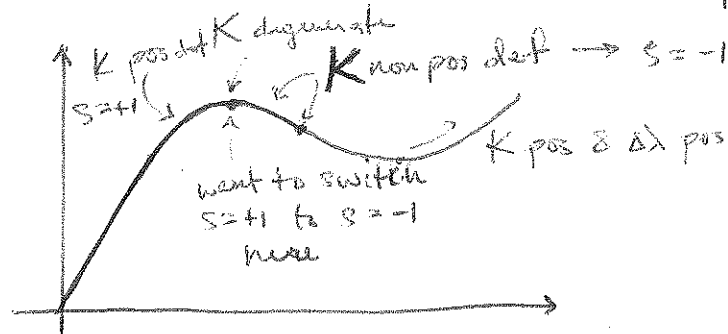 K pos def
s=+1
K degenerate
K non pos def → s = -1
K pos & Δλ pos
want to switch
s=+1 to s=-1
here